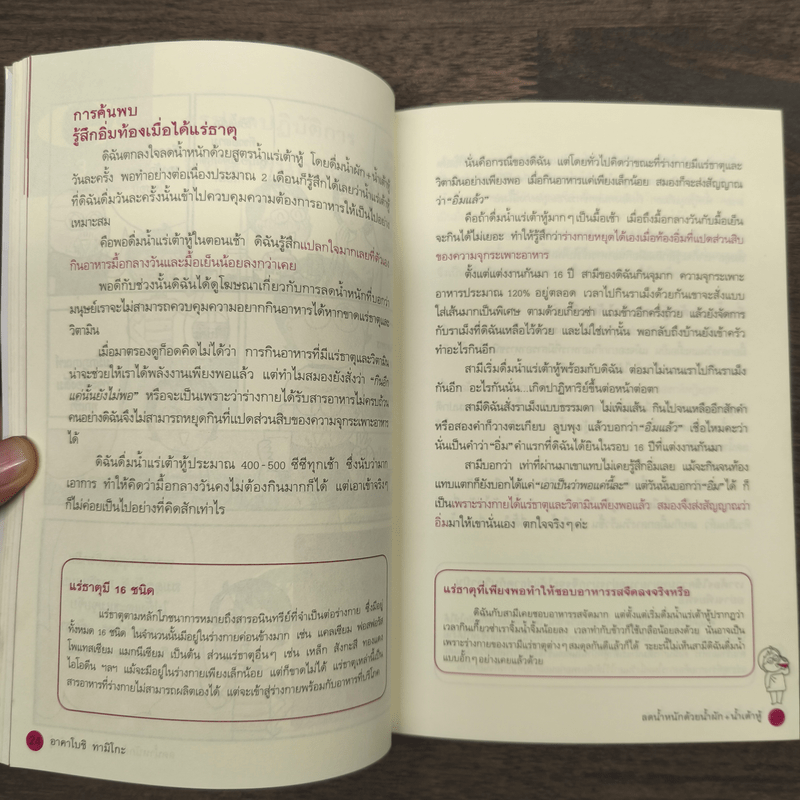 การค้นพบ
รู้สึกอิ่มท้องเมื่อได้แร่ธาตุ
ดิฉันตกลงใจลดน้ำหนักด้วยสูตรน้ำแร่เต้าหู้ โดยดื่มน้ำผัก+น้ำเต้าหู้
วันละครั้ง พอทำอย่างต่อเนื่องประมาณ 2 เดือนก็รู้สึกได้เลยว่าน้ำแร่เต้าหู้
ที่ดิฉันดื่มวันละครั้งนั้นเข้าไปควบคุมความต้องการอาหารให้เป็นไปอย่าง
เหมาะสม
คือพอดื่มน้ำแร่เต้าหู้ในตอนเช้า ดิฉันรู้สึกแปลกใจมากเลยที่ตัวเอง
กินอาหารมื้อกลางวันและมื้อเย็นน้อยลงกว่าเคย
พอดีกับช่วงนั้นดิฉันได้ดูโฆษณาเกี่ยวกับการลดน้ำหนักที่บอกว่า
มนุษย์เราจะไม่สามารถควบคุมความอยากกินอาหารได้หากขาดแร่ธาตุและ
วิตามิน
เมื่อมาตรองดูก็อดคิดไม่ได้ว่า การกินอาหารที่มีแร่ธาตุและวิตามิน
น่าจะช่วยให้เราได้พลังงานเพียงพอแล้ว แต่ทำไมสมองยังสั่งว่า “กินอีก
แค่นั้นยังไม่พอ” หรือจะเป็นเพราะว่าร่างกายได้รับสารอาหารไม่ครบถ้วน
คนอย่างดิฉันจึงไม่สามารถหยุดกินที่แปดส่วนสิบของความจุกระเพาะอาหาร
ได้
ดิฉันดื่มน้ำแร่เต้าหู้ประมาณ 400-500 ซีซีทุกเช้า ซึ่งนับว่ามาก
เอาการ ทำให้คิดว่ามื้อกลางวันคงไม่ต้องกินมากก็ได้ แต่เอาเข้าจริงๆ
ก็ไม่ค่อยเป็นไปอย่างที่คิดสักเท่าไร
แร่ธาตุมี 16 ชนิด
แร่ธาตุตามหลักโภชนาการหมายถึงสารอนินทรีย์ที่จำเป็นต่อร่างกาย ซึ่งมีอยู่
ทั้งหมด 16 ชนิด ในจำนวนนั้นมีอยู่ในร่างกายค่อนข้างมาก เช่น แคลเซียม ฟอสฟอรัส
โพแทสเซียม แมกนีเซียม เป็นต้น ส่วนแร่ธาตุอื่นๆ เช่น เหล็ก สังกะสี ทองแดง
ไอโอดีน ฯลฯ แม้จะมีอยู่ในร่างกายเพียงเล็กน้อย แต่ก็ขาดไม่ได้ แร่ธาตุเหล่านี้เป็น
สารอาหารที่ร่างกายไม่สามารถผลิตเองได้ แต่จะเข้าสู่ร่างกายพร้อมกับอาหารที่บริโภค
24 อาคาโบชิ ทามิโกะ
นั่นคือกรณีของดิฉัน แต่โดยทั่วไปคิดว่าขณะที่ร่างกายมีแร่ธาตุและ
วิตามินอย่างเพียงพอ เมื่อกินอาหารแค่เพียงเล็กน้อย สมองก็จะส่งสัญญาณ
ว่า “อิ่มแล้ว”
คือถ้าดื่มน้ำแร่เต้าหู้มากๆ เป็นมื้อเช้า เมื่อถึงมื้อกลางวันกับมื้อเย็น
จะกินได้ไม่เยอะ ทำให้รู้สึกว่าร่างกายหยุดได้เองเมื่อท้องอิ่มที่แปดส่วนสิบ
ของความจุกระเพาะอาหาร
ตั้งแต่แต่งงานกันมา 16 ปี สามีของดิฉันกินจุมาก ความจุกระเพาะ
อาหารประมาณ 120% อยู่ตลอด เวลาไปกินราเม็งด้วยกันเขาจะสั่งแบบ
ใส่เส้นมากเป็นพิเศษ ตามด้วยเกี๊ยวซ่า แถมข้าวอีกครึ่งถ้วย แล้วยังจัดการ
กับราเม็งที่ดิฉันเหลือไว้ด้วย และไม่ใช่เท่านั้น พอกลับถึงบ้านยังเข้าครัว
ทำอะไรกินอีก
สามีเริ่มดื่มน้ำแร่เต้าหู้พร้อมกับดิฉัน ต่อมาไม่นานเราไปกินราเม็ง
กันอีก อะไรกันนั่น...เกิดปาฏิหาริย์ขึ้นต่อหน้าต่อตา
สามีดิฉันสั่งราเม็งแบบธรรมดา ไม่เพิ่มเส้น กินไปจนเหลืออีกสักคำ
หรือสองคำก็วางตะเกียบ ลูบพุง แล้วบอกว่า “อิ่มแล้ว” เชื่อไหมคะว่า
นั่นเป็นคำว่า “อิ่ม” คำแรกที่ดิฉันได้ยินในรอบ 16 ปีที่แต่งงานกันมา
สามีบอกว่า เท่าที่ผ่านมาเขาแทบไม่เคยรู้สึกอิ่มเลย แม้จะกินจนท้อง
แทบแตกก็ยังบอกได้แค่ “เอาเป็นว่าพอแค่นี้ละ” แต่วันนั้นบอกว่า “อิ่ม” ได้ ก็
เป็นเพราะร่างกายได้แร่ธาตุและวิตามินเพียงพอแล้ว สมองจึงส่งสัญญาณว่า
อิ่มมาให้เขานั่นเอง ตกใจจริงๆ ค่ะ
แร่ธาตุที่เพียงพอทำให้ชอบอาหารรสจืดลงจริงหรือ
ดิฉันกับสามีเคยชอบอาหารรสจัดมาก แต่ตั้งแต่เริ่มดื่มน้ำแร่เต้าหู้ปรากฏว่า
เวลากินเกี๊ยวซ่าเราจิ้มน้ำจิ้มน้อยลง เวลาทำกับข้าวก็ใช้เกลือน้อยลงด้วย นั่นอาจเป็น
เพราะร่างกายของเรามีแร่ธาตุต่างๆ สมดุลกันดีแล้วก็ได้ ระยะนี้ไม่เห็นสามีดิฉันดื่มน้ำ
แบบอั้กๆ อย่างเคยแล้วด้วย
ลดน้ำหนักด้วยน้ำผัก+น้ำเต้าหู้